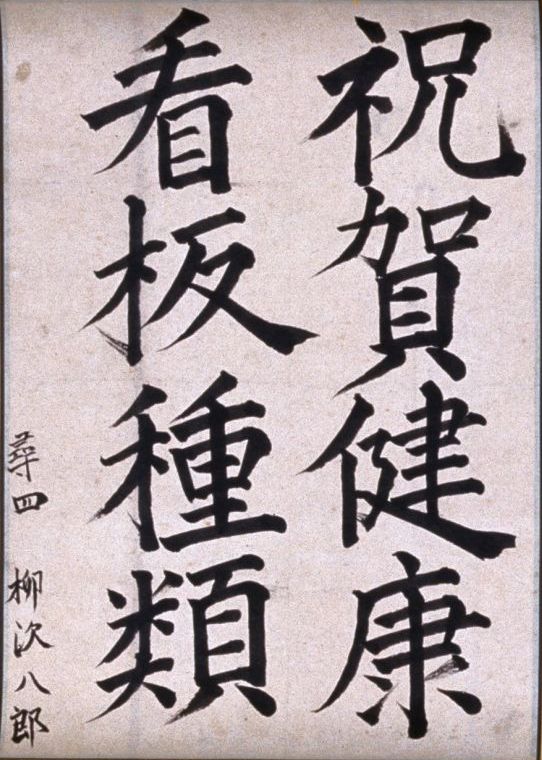 祝賀健康
看板種類
尋四 柳次八郎